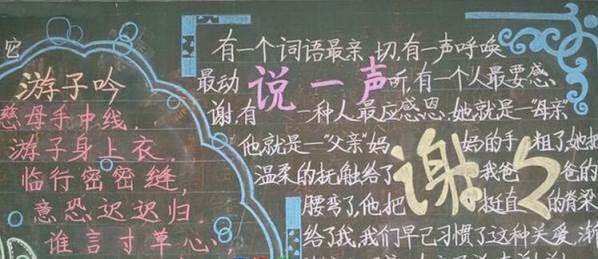 它
游子吟
慈母手中线，
游子身上衣，
临行密密缝，
意恐迟迟归
谁言寸草心，
有一个词语最亲切，有一声呼唤
最动听，有一个人最要感
说一声
谢，有一种人最应感恩，她就是“母亲
他就是“父亲”妈妈的手粗了，她把
温柔的抚触给了我爸爸的
谢々
腰弯了，他把挺直的脊梁
给了我，我们早已习惯了这种关爱，渐